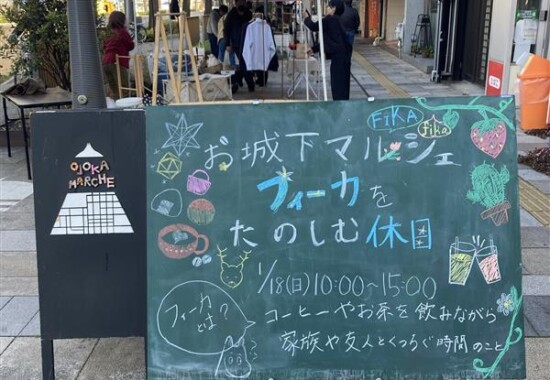 OJOKA
MARCHE
FiKA
fika
お城下マルシェ
フィーカを
たのしむ休日
1/18(日)10:00〜15:00
フィーカ
とは?
コーヒーやお茶を飲みながら
家族や友人とくつろぐ時間のこと